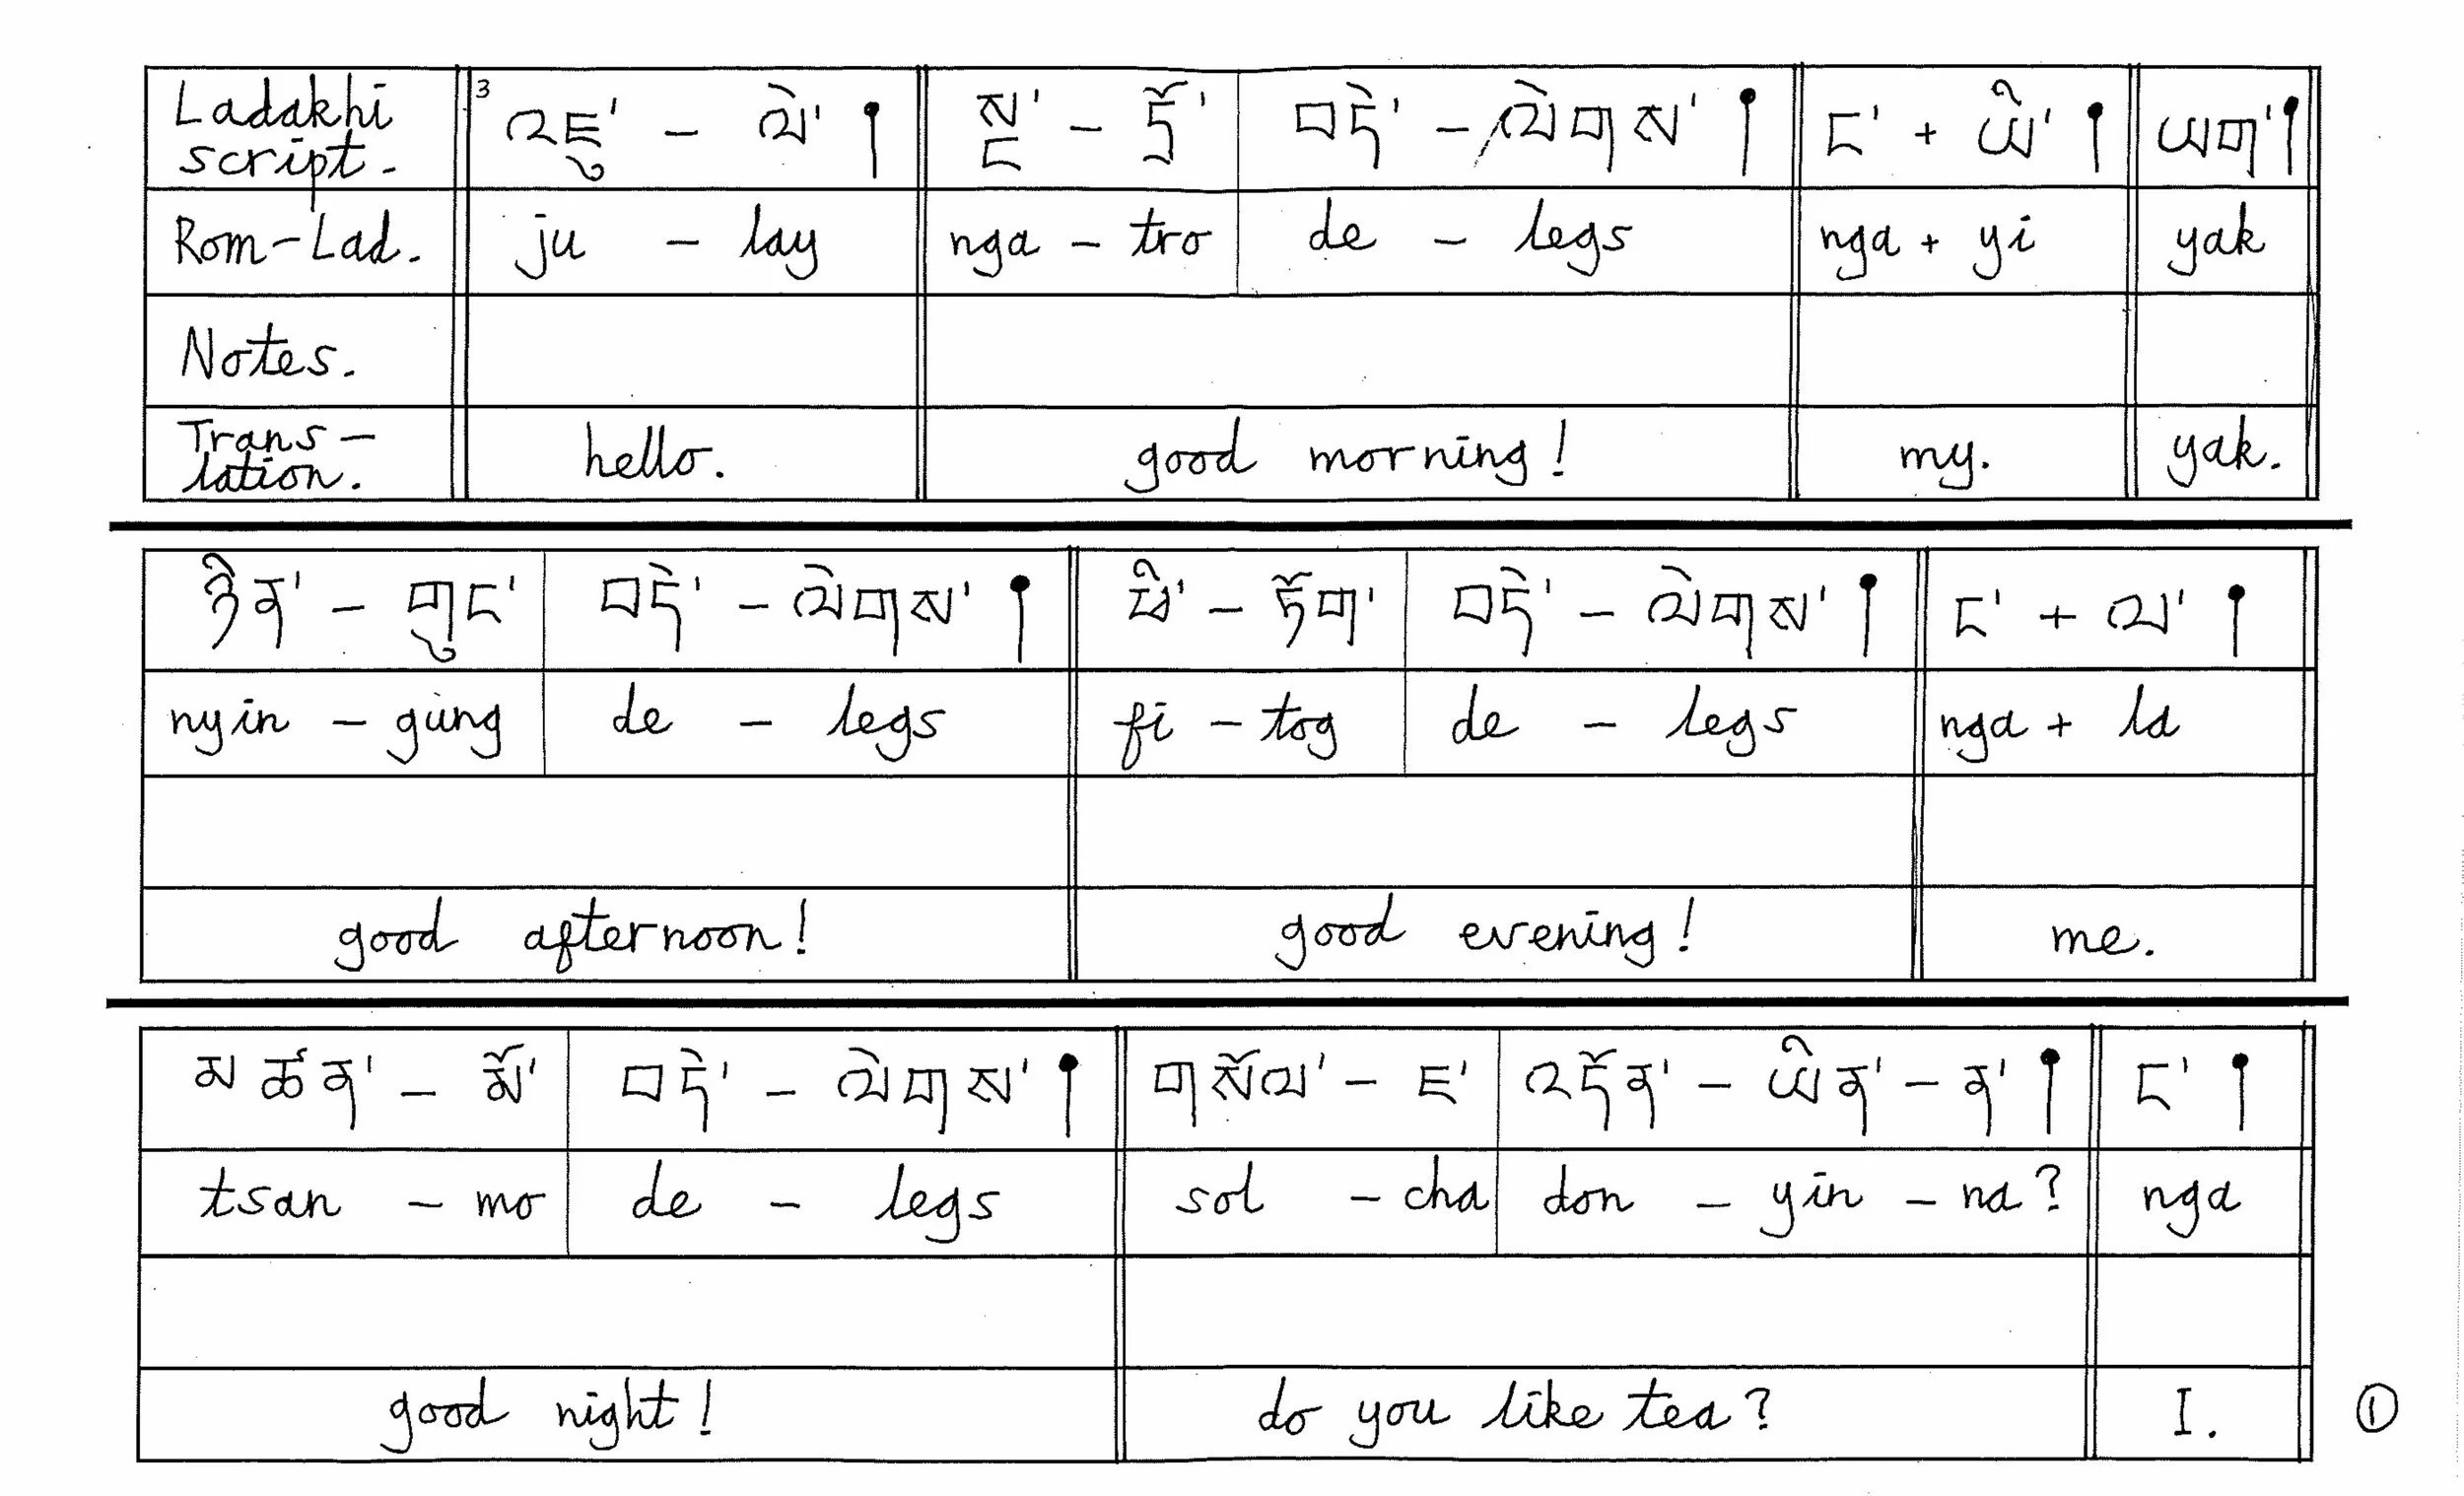 Ladakhi script. 3 འཇུ་ – ལེ་ ། སྔ་ – ཏྲོ་ བདེ་ – ལེགས་ ། ང་ + ཡི་ ། ཡག་ །
Rom-Lad. ju – lay nga – tro de – legs nga + yi yak
Notes.
Trans-lation. hello. good morning! my. yak.
ཉིན་ – གུང་ བདེ་ – ལེགས་ ། ཕི་ – ཏོག་ བདེ་ – ལེགས་ ། ང་ + ལ་ །
nyin – gung de – legs fi – tog de – legs nga + la
good afternoon! good evening! me.
མཚན་ – མོ་ བདེ་ – ལེགས་ ། གསོལ་ – ཇ་ འདོན་ – ཡིན་ – ན་ ། ང་ །
tsan – mo de – legs sol – cha don – yin – na? nga
good night! do you like tea? I.
①